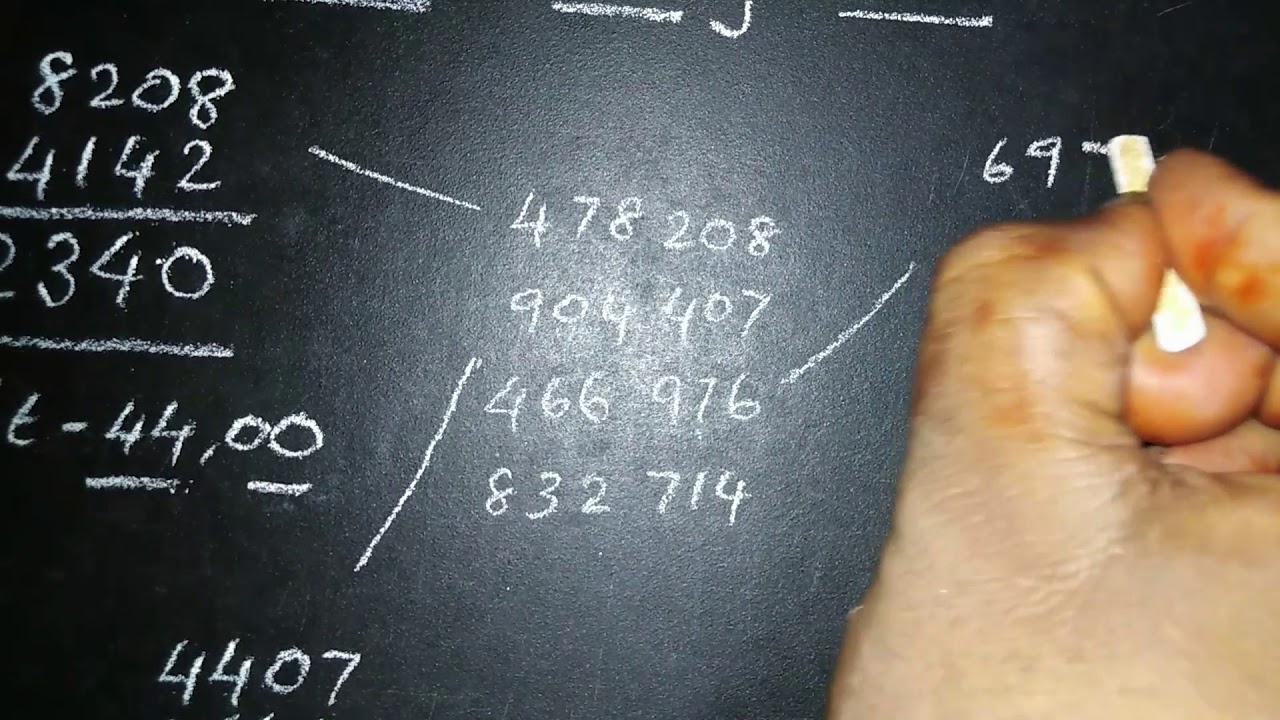 8208
4142
2340
t-44,00
478 208
904 407
466 976
832 714
69
4407